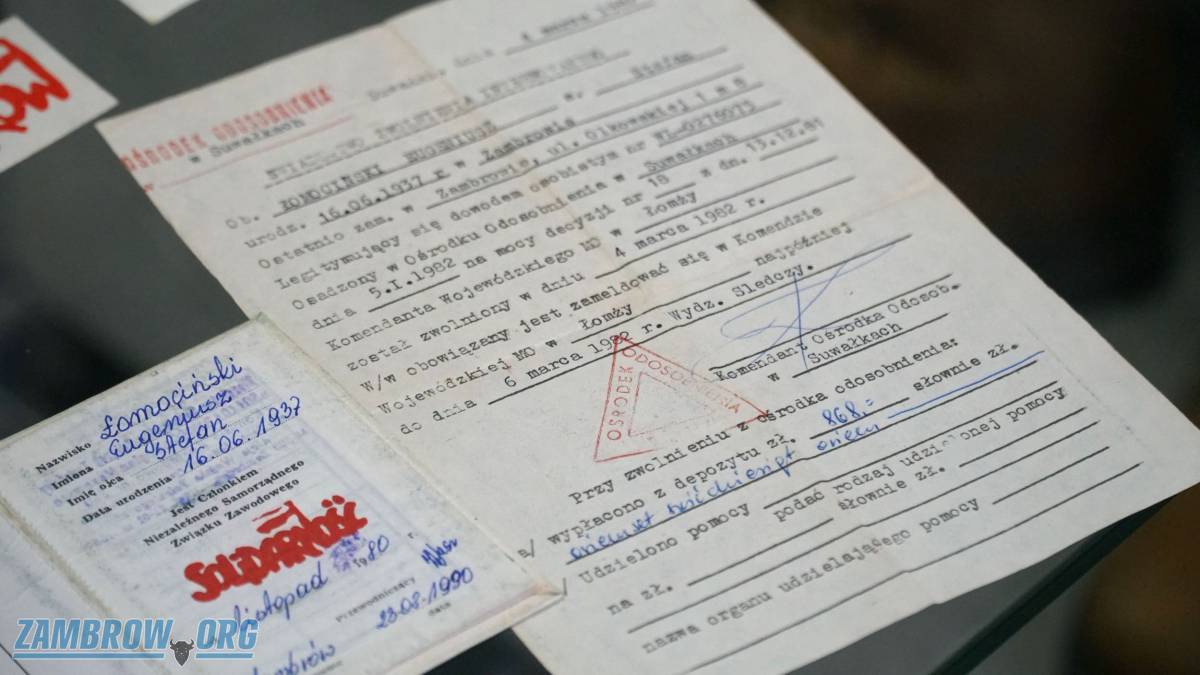 OŚRODEK ODOSOBNIENIA
w Suwałkach
Suwałki, dnia 4 marca 1982
ŚWIADECTWO ZWOLNIENIA
Ob. ŁOMOCIŃSKI EUGENIUSZ s. Stefan
urodz. 16.06.1937 r w Zambrowie
Ostatnio zam. w Zambrowie, ul. Olkowskiej
Legitymujący się dowodem osobistym nr WL-0276975
Osadzony w Ośrodku Odosobnienia w Suwałkach
dnia 5.I.1982 na mocy decyzji nr 18 z dn. 13.12.81
Komendanta Wojewódzkiego MO w Łomży
został zwolniony w dniu 4 marca 1982 r.
W/w obowiązany jest zameldować się w Komendzie
Wojewódzkiej MO w Łomży najpóźniej
do dnia 6 marca 1982 r. Wydz. Sledczy.
Komendant Ośrodka Odosob.
w Suwałkach
OŚRODEK ODOSOBNIENIA
Przy zwolnieniu z ośrodka odosobnienia:
a/ wypłacono z depozytu zł. 868.- słownie zł.
osiemset sześćdziesiąt osiem
/ Udzielono pomocy podać rodzaj udzielonej pomocy
na zł. słownie zł.
nazwa organu udzielającego pomocy
Nazwisko Łomociński
Imiona Eugeniusz
Imię ojca Stefan
Data urodzenia 16.06.1937
Jest Członkiem
Niezależnego Samorządnego
Związku Zawodowego
SOLIDARNOŚĆ
listopad 1980
Przewodniczący
23.08.1990
data
ZAMBROW.ORG